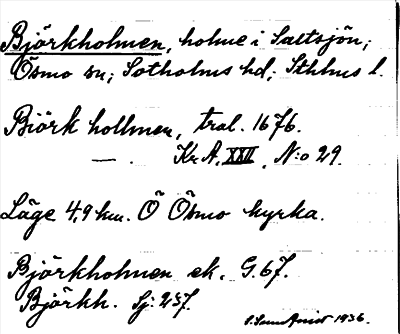 Björkholmen, holme i Saltsjön;
Ösmo sn; Sotholms hd; Sthlms l.
Biörk hollmen, tral. 1676.
— . Kr A. XXII, N:o 29.
Läge 4,9 km. Ö Ösmo kyrka.
Björkholmen ek. G. 67.
Björkh. Sj: 237.
1936.